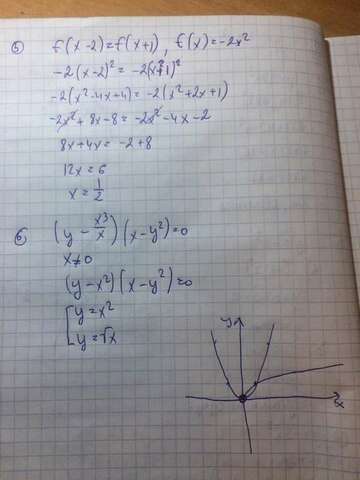 ⑤ f(x-2)=f(x+1), f(x)=-2x²
-2(x-2)²=-2(x+1)²
-2(x²-4x+4)=-2(x²+2x+1)
-2x²+8x-8=-2x²-4x-2
8x+4x=-2+8
12x=6
x=1/2
⑥ (y-x³/x)(x-y²)=0
x≠0
(y-x²)(x-y²)=0
[y=x²
y=√x
y
x